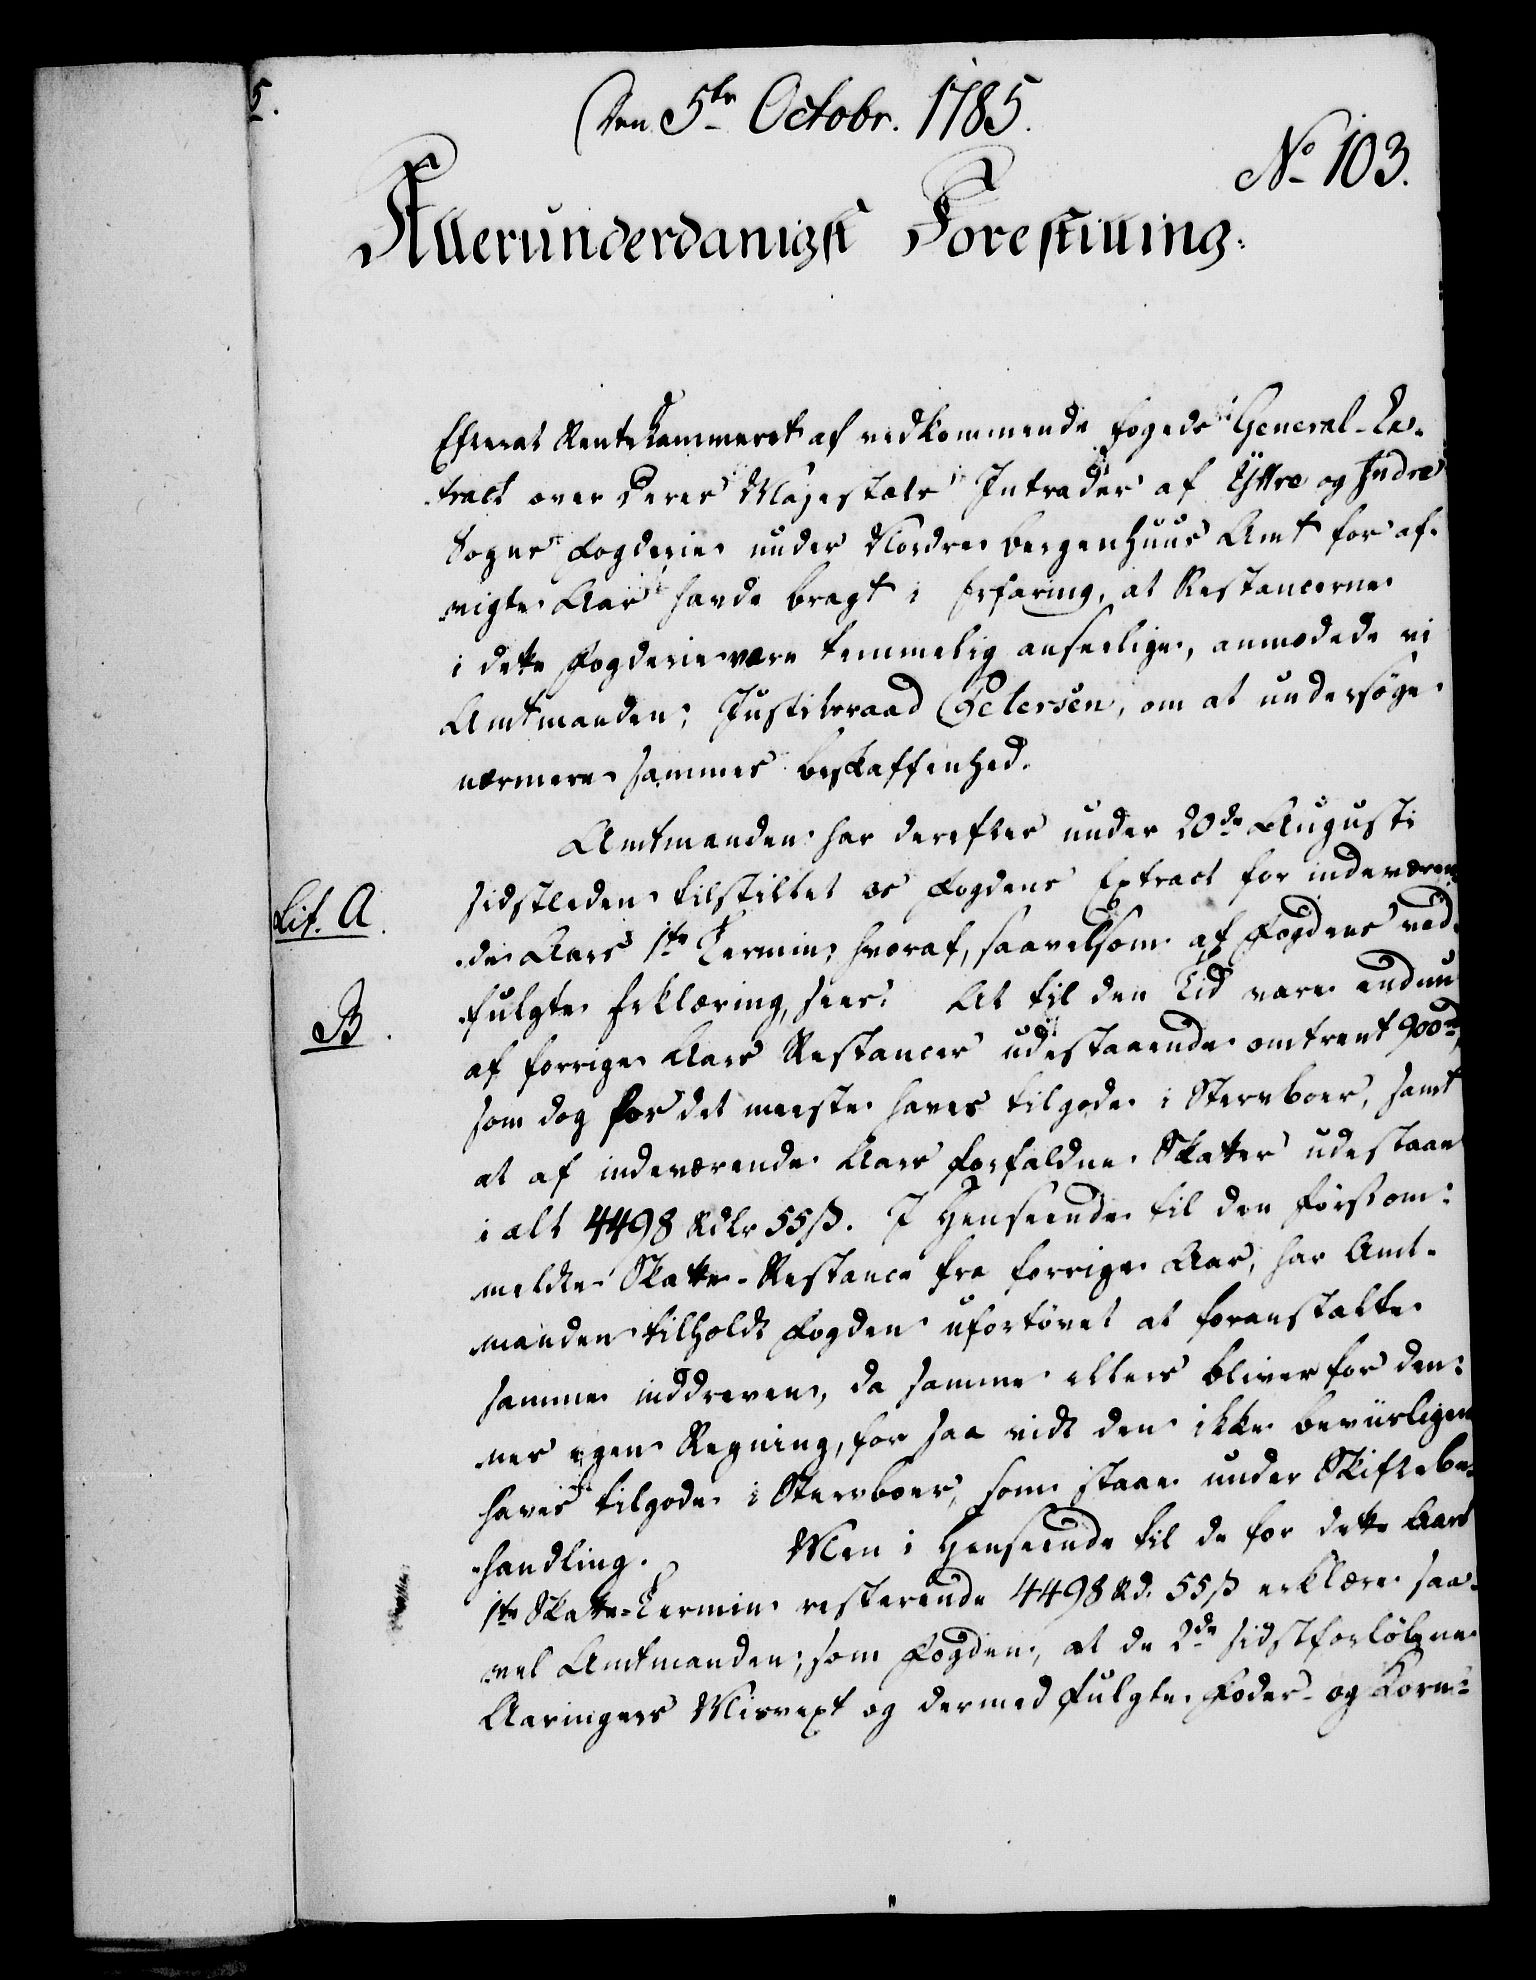 5.
Den 5te Octobr. 1785.
No 103.
Allerunderdanigst Forestilling.
Efterat Rentekammeret af vedkommende Fogeds General-Ex-
tract over Deres Majestæts Intrader af Yttre og Indre
Sogns Fogderie under Nordre Bergenhuus Amt for af-
vigte Aar havde bragt i Erfaring, at Restancerne
i dette Fogderie vare temmelig anseelige, anmodede vi
Amtmanden, Justitsraad Petersen, om at undersøge
nærmere sammes Beskaffenhed.
Amtmanden har derefter under 20de Augusti
Lit. A. sidstleden tilstillet os Fogdens Extract for indeværen-
de Aars 1te Termin, hvoraf, saavelsom af Fogdens ved-
B. fulgte Erklæring, sees: At til den Tid vare endnu
af forrige Aars Restancer udestaaende omtrent 900rd,
som dog for det meeste haves tilgode i Stervboer, samt
at af indeværende Aars forfaldne Skatter udestaae
i alt 4498 Rdlr 55 ß. I Henseende til den førstom-
meldte Skatte-Restance fra forrige Aar, har Amt-
manden tilholdt Fogden ufortøvet at foranstalte
samme inddreven, da samme ellers bliver for den-
nes egen Regning, for saa vidt den ikke beviisligen
haves tilgode i Stervboer, som staae under Skiftebe-
handling. Men i Henseende til de for dette Aars
1te Skatte-Termin resterende 4498 Rd. 55 ß erklære saa-
vel Amtmanden, som Fogden, at de 2de sidstforløbne
Aaringers Misvext og dermed fulgte Foder- og Korn-